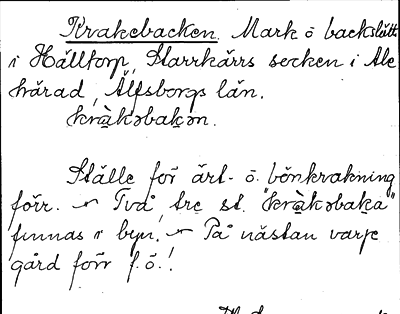 Krakebacken. Mark o backslätt
i Hålltorp, Starrkärrs socken i Ale
härad, Älfsborgs län.
kràkəbakən.
Ställe för ärt- o. bönkrakning
förr. Två, tre st. "kràkəbaka"
finnas i byn. På nästan varje
gård förr f. ö.!